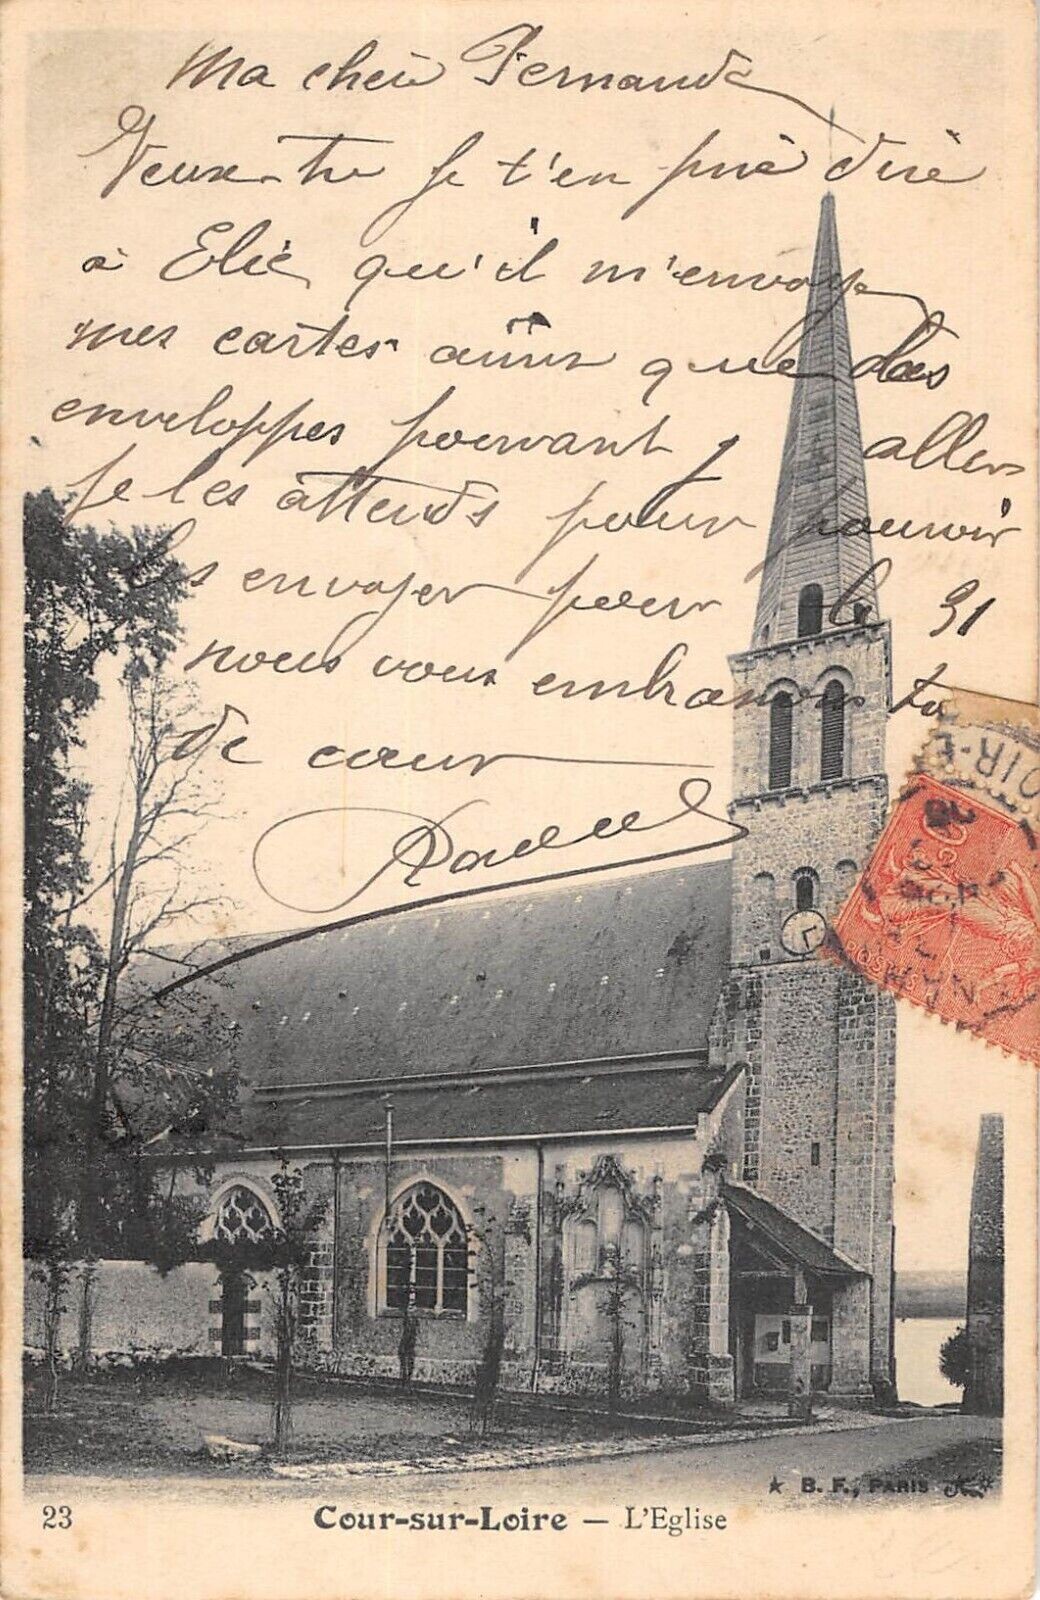 Ma chère Fernande
Veux-tu je t'en prie dire
à Elie qu'il m'envoye
mes cartes ainsi que des
enveloppes pouvant y aller
je les attends pour pouvoir
les envoyer pour le 31
nous vous embrassons ts
de cœur
Raoul
★ B. F., PARIS
23 Cour-sur-Loire — L'Eglise